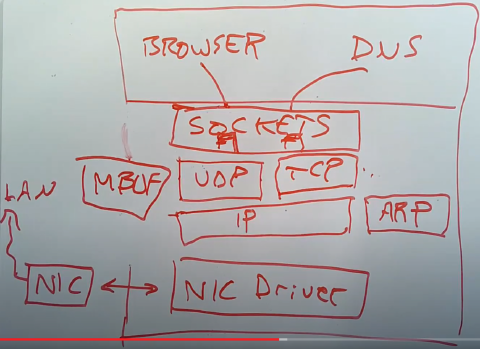 BROWSER DNS
SOCKETS
MBUF UDP TCP ..
LAN
IP ARP
NIC NIC Driver